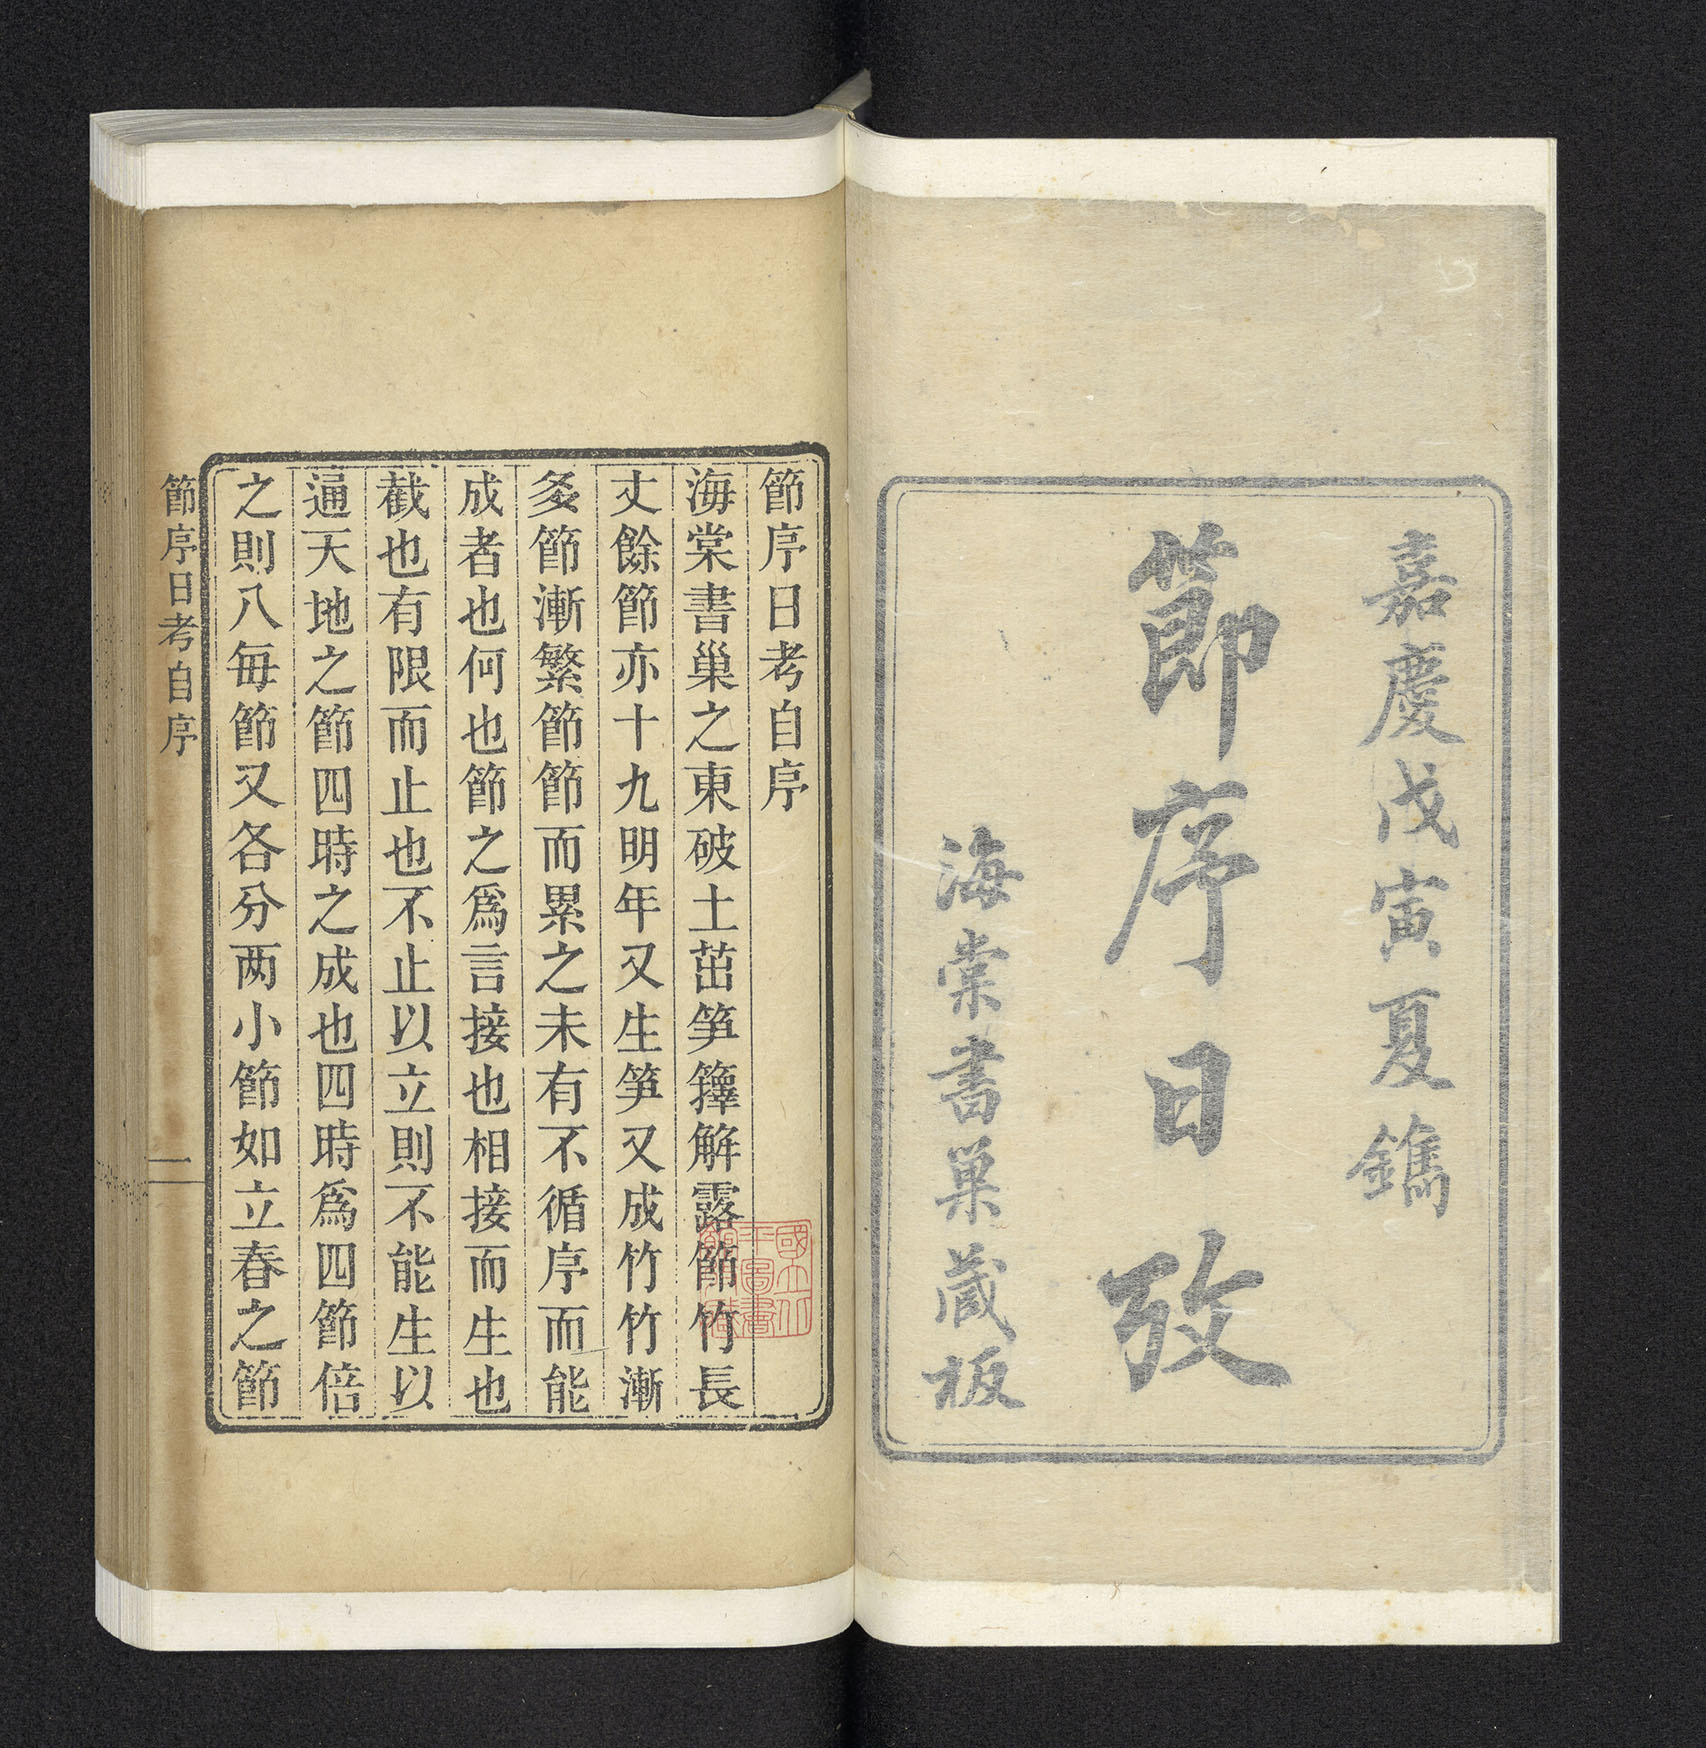 嘉慶戊寅夏鐫
節序日攷
海棠書巢藏板
節序日考自序
海棠書巢之東破土茁笋籜解露節竹長
丈餘節亦十九明年又生笋又成竹竹漸
多節漸繁節節而累之未有不循序而能
成者也何也節之爲言接也相接而生也
截也有限而止也不止以立則不能生以
通天地之節四時之成也四時爲四節倍
之則八每節又各分两小節如立春之節
節序日考自序
一
國立北
平圖書
館藏